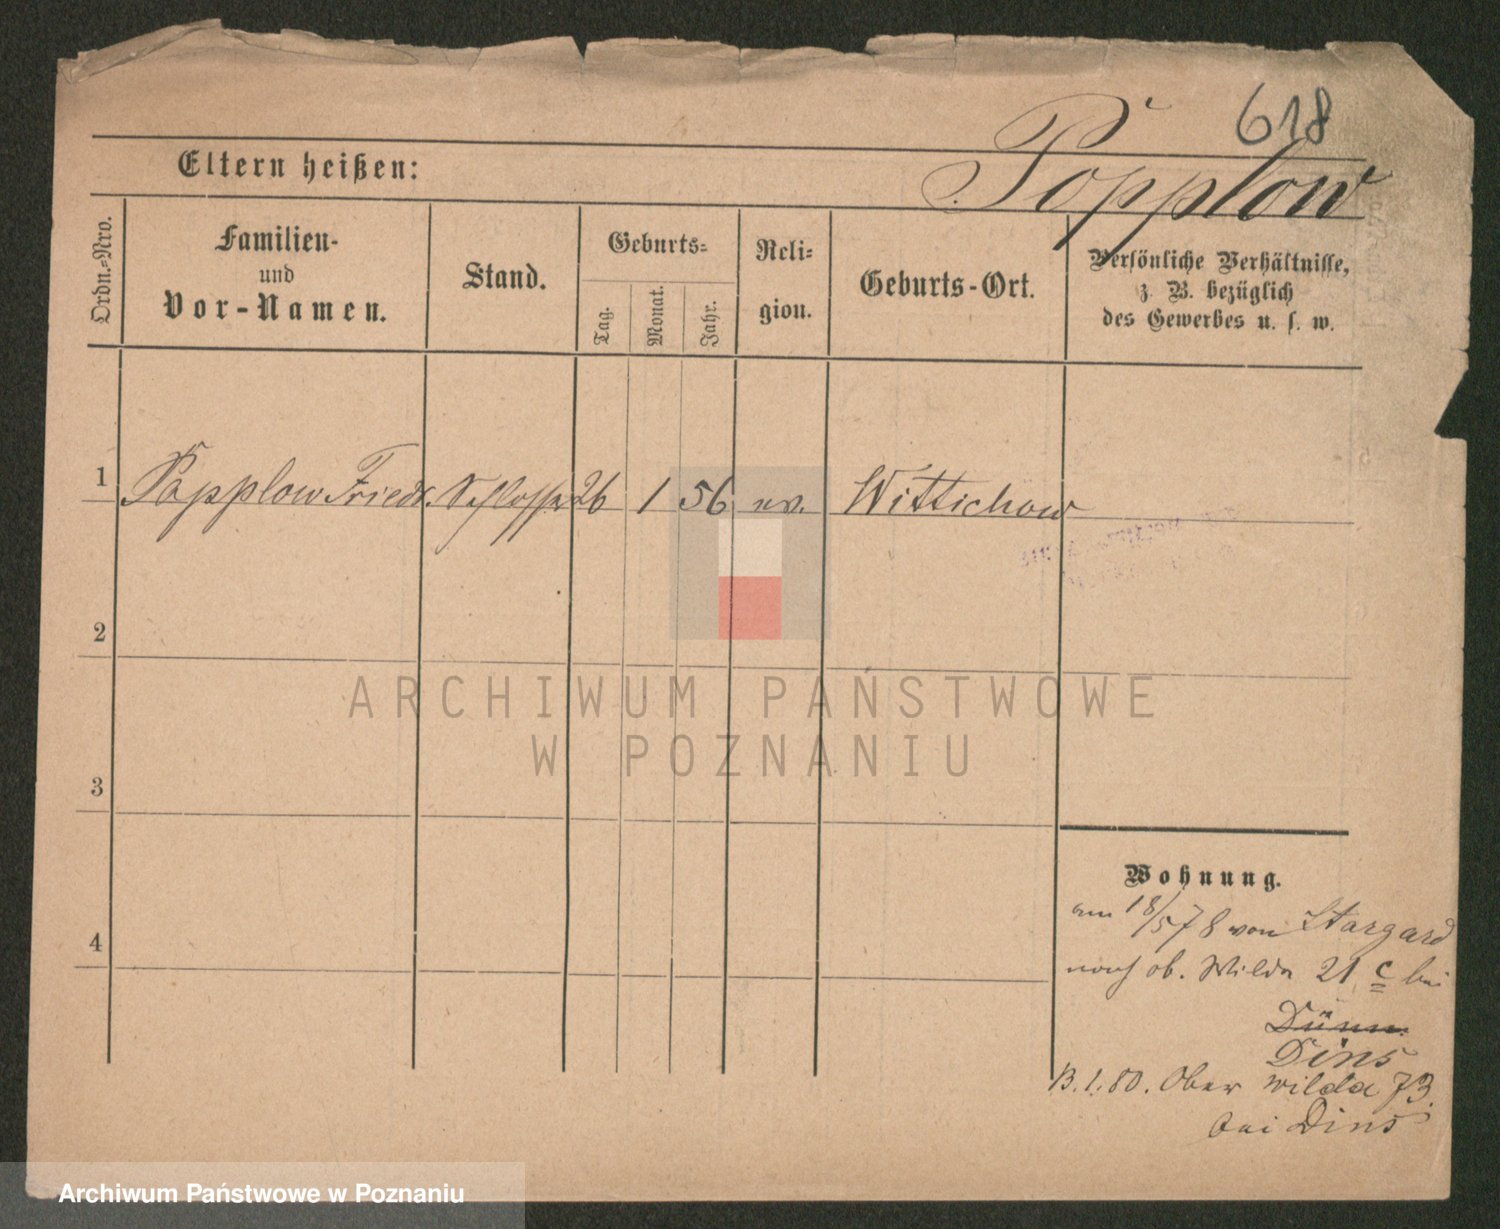 618
Popplow
Eltern heißen:
Ordn.-Nro.
Familien-
und
Vor-Namen.
Stand.
Geburts-
Tag.
Monat.
Jahr.
Reli-
gion.
Geburts-Ort.
Persönliche Verhältnisse,
z. B. bezüglich
des Gewerbes u. s. w.
1 Popplow Friedr. Schlosser 26 1 56 ev. Wittichow
2
3
4
Wohnung.
am 18/5 78 von Stargard
nach ob. Wilda 21 c bei
Dünn.
Dins
13.1.80. Ober wilda 73.
bei Dins
ARCHIWUM PAŃSTWOWE
W POZNANIU
Archiwum Państwowe w Poznaniu